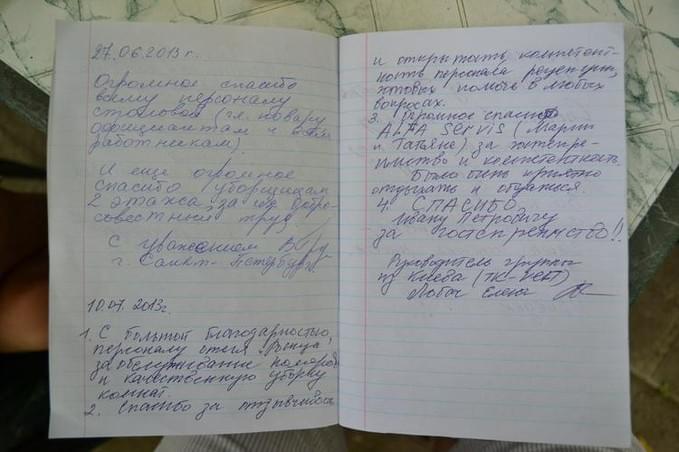 27.06.2013 г.
Огромное спасибо
всему персоналу
столовой (гл. повару
официантам и всем
работникам)
И еще огромное
спасибо уборщицам
2 этажа, за их добро-
совестный труд
С уважением
г. Санкт-Петербург
10.07.2013г.
1. С большой благодарностью,
персоналу отеля
за обслуживание номеров
и качественную уборку
комнат.
2. Спасибо за отзывчивость
и открытость, компетент-
ность персонала рецепции,
готовых помочь в любых
вопросах.
3. Огромное спасибо
ALFA Servis (Марии
и Татьяне) за гостепри-
имство и компетентность.
Было очень приятно
отдыхать и общаться.
4. СПАСИБО
Ивану Петровичу
за гостеприимство!!
Руководитель группы
из Киева
Елена